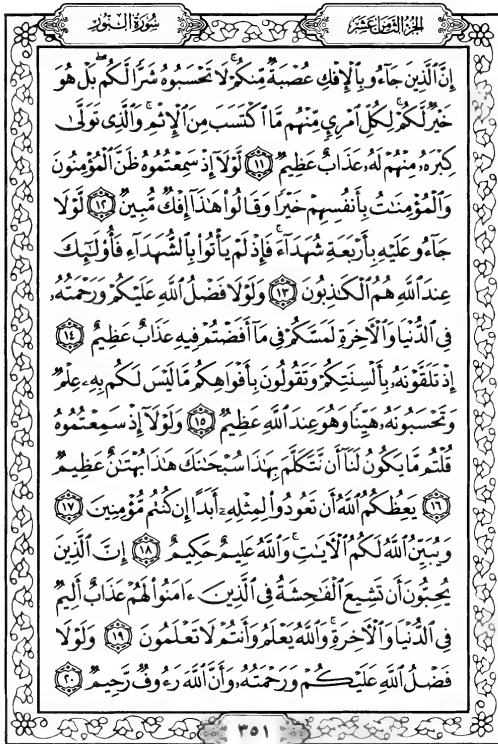 الجزء الثامن عشر
سورة النور
إِنَّ الَّذِينَ جَآءُو بِالْإِفْكِ عُصْبَةٌ مِّنكُمْ ۚ لَا تَحْسَبُوهُ شَرًّا لَّكُم ۖ بَلْ هُوَ
خَيْرٌ لَّكُمْ ۚ لِكُلِّ امْرِئٍ مِّنْهُم مَّا اكْتَسَبَ مِنَ الْإِثْمِ ۚ وَالَّذِى تَوَلَّىٰ
كِبْرَهُۥ مِنْهُمْ لَهُۥ عَذَابٌ عَظِيمٌ ۝١١ لَّوْلَآ إِذْ سَمِعْتُمُوهُ ظَنَّ الْمُؤْمِنُونَ
وَالْمُؤْمِنَٰتُ بِأَنفُسِهِمْ خَيْرًا وَقَالُوا۟ هَٰذَآ إِفْكٌ مُّبِينٌ ۝١٢ لَّوْلَا
جَآءُو عَلَيْهِ بِأَرْبَعَةِ شُهَدَآءَ ۚ فَإِذْ لَمْ يَأْتُوا۟ بِالشُّهَدَآءِ فَأُو۟لَٰٓئِكَ
عِندَ اللَّهِ هُمُ الْكَٰذِبُونَ ۝١٣ وَلَوْلَا فَضْلُ اللَّهِ عَلَيْكُمْ وَرَحْمَتُهُۥ
فِى الدُّنْيَا وَالْءَاخِرَةِ لَمَسَّكُمْ فِى مَآ أَفَضْتُمْ فِيهِ عَذَابٌ عَظِيمٌ ۝١٤
إِذْ تَلَقَّوْنَهُۥ بِأَلْسِنَتِكُمْ وَتَقُولُونَ بِأَفْوَاهِكُم مَّا لَيْسَ لَكُم بِهِۦ عِلْمٌ
وَتَحْسَبُونَهُۥ هَيِّنًا وَهُوَ عِندَ اللَّهِ عَظِيمٌ ۝١٥ وَلَوْلَآ إِذْ سَمِعْتُمُوهُ
قُلْتُم مَّا يَكُونُ لَنَآ أَن نَّتَكَلَّمَ بِهَٰذَا سُبْحَٰنَكَ هَٰذَا بُهْتَٰنٌ عَظِيمٌ
۝١٦ يَعِظُكُمُ اللَّهُ أَن تَعُودُوا۟ لِمِثْلِهِۦٓ أَبَدًا إِن كُنتُم مُّؤْمِنِينَ ۝١٧
وَيُبَيِّنُ اللَّهُ لَكُمُ الْءَايَٰتِ ۚ وَاللَّهُ عَلِيمٌ حَكِيمٌ ۝١٨ إِنَّ الَّذِينَ
يُحِبُّونَ أَن تَشِيعَ الْفَٰحِشَةُ فِى الَّذِينَ ءَامَنُوا۟ لَهُمْ عَذَابٌ أَلِيمٌ
فِى الدُّنْيَا وَالْءَاخِرَةِ ۚ وَاللَّهُ يَعْلَمُ وَأَنتُمْ لَا تَعْلَمُونَ ۝١٩ وَلَوْلَا
فَضْلُ اللَّهِ عَلَيْكُمْ وَرَحْمَتُهُۥ وَأَنَّ اللَّهَ رَءُوفٌ رَّحِيمٌ ۝٢٠
٣٥١